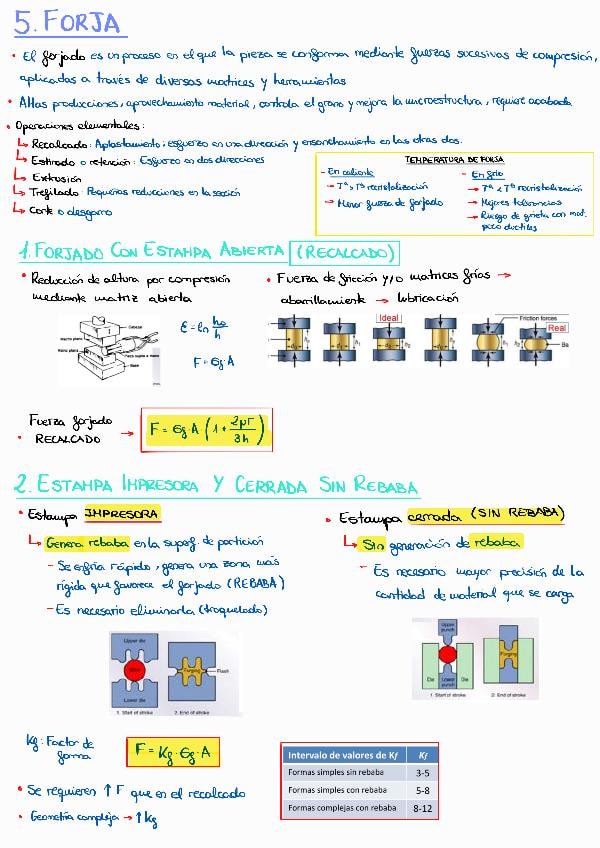 5. FORJA
• El forjado es un proceso en el que la pieza se conforma mediante fuerzas sucesivas de compresión,
aplicadas a través de diversas matrices y herramientas
• Altas producciones, aprovechamiento material, controla el grano y mejora la microestructura, requiere acabado
• Operaciones elementales:
↳ Recalcado: Aplastamiento; esfuerzo en una dirección y ensanchamiento en las otras dos.
↳ Estirado o retención: Esfuerzo en dos direcciones
↳ Extrusión
↳ Trefilado: Pequeñas reducciones en la sección
↳ Corte o desgarro
TEMPERATURA DE FORJA
- En caliente
→ Tª > Tª recristalización
→ Menor fuerza de forjado
- En frío
→ Tª < Tª recristalización
→ Mejores tolerancias
→ Riesgo de grieta con mat.
poco dúctiles
1. FORJADO CON ESTAMPA ABIERTA (RECALCADO)
• Reducción de altura por compresión
mediante matriz abierta
• Fuerza de fricción y/o matrices frías →
abarrilamiento → lubricación
Cabezal
Macho plano
Base
ε = ln h₀/h
F = σf · A
Ideal
Friction forces
Real
Ba
Fuerza forjado
• RECALCADO → F = σf · A (1 + 2μr/3h)
2. ESTAMPA IMPRESORA Y CERRADA SIN REBABA
• Estampa IMPRESORA
↳ Genera rebaba en la superf. de partición
- Se enfría rápido, genera una zona más
rígida que favorece el forjado (REBABA)
- Es necesario eliminarla (troquelado)
• Estampa cerrada (SIN REBABA)
↳ Sin generación de rebaba
- Es necesario mayor precisión de la
cantidad de material que se carga
Upper die
Lower die
Forging
Flash
1. Start of stroke
2. End of stroke
Upper
punch
Die
Lower
punch
Die
Forging
1. Start of stroke
2. End of stroke
Kf: Factor de
forma
F = Kf · σf · A
• Se requieren ↑ F que en el recalcado
• Geometría compleja → ↑ Kf
Intervalo de valores de Kf Kf
Formas simples sin rebaba 3-5
Formas simples con rebaba 5-8
Formas complejas con rebaba 8-12